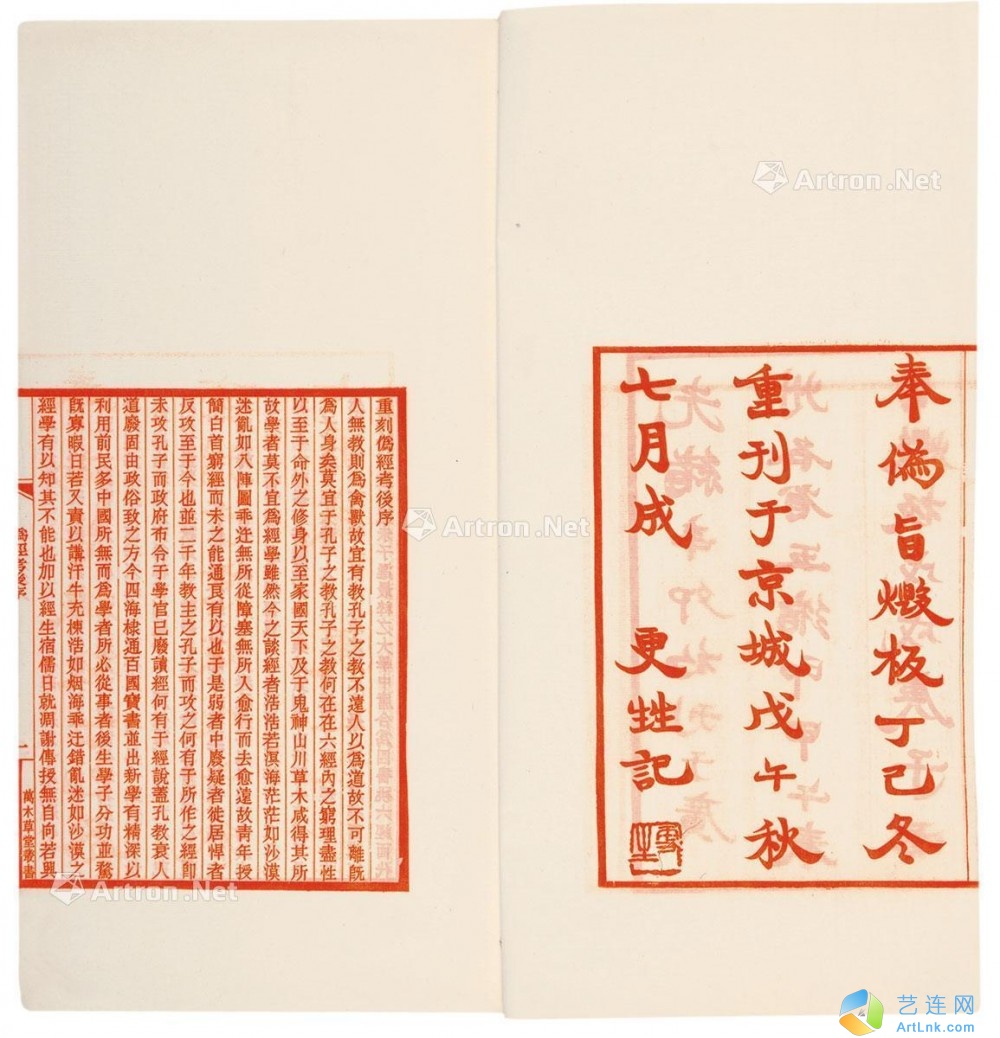 奉偽旨燬板丁巳冬
重刊于京城戊午秋
七月成 更甡記
重刻偽經考後序
人無教則為禽獸故宜有教孔子之教不遠人以為道故不可離既
為人身矣莫宜于孔子之教孔子之教何在在六經內之窮理盡性
以至于命外之修身以至家國天下及于鬼神山川草木咸得其所
故學者莫不宜為經學雖然今之談經者浩浩若溟海茫茫如沙漠
迷亂如八陣圖乖迕無所從障塞無所入愈行而去愈遠故青年授
簡白首窮經而未之能通良有以也于是弱者中廢疑者徙居悍者
反攻至于今也並二千年教主之孔子而攻之何有于所作之經即
未攻孔子而政府布令于學官已廢讀經何有于經說蓋孔教衰人
道廢固由政俗致之方今四海棣通百國寶書並出新學有精深以
利用前民多中國所無而為學者所必從事者後生學子分功並騖
既寡暇日若又責以講汗牛充棟浩如烟海乖迕錯亂迷如沙漠之
經學有以知其不能也加以經生宿儒日就凋謝傳授無自向若興
偽經考後序
一
萬木草堂叢書
Artron.Net
Artron.Net
Artron.Net
艺连网
ArtLnk.com